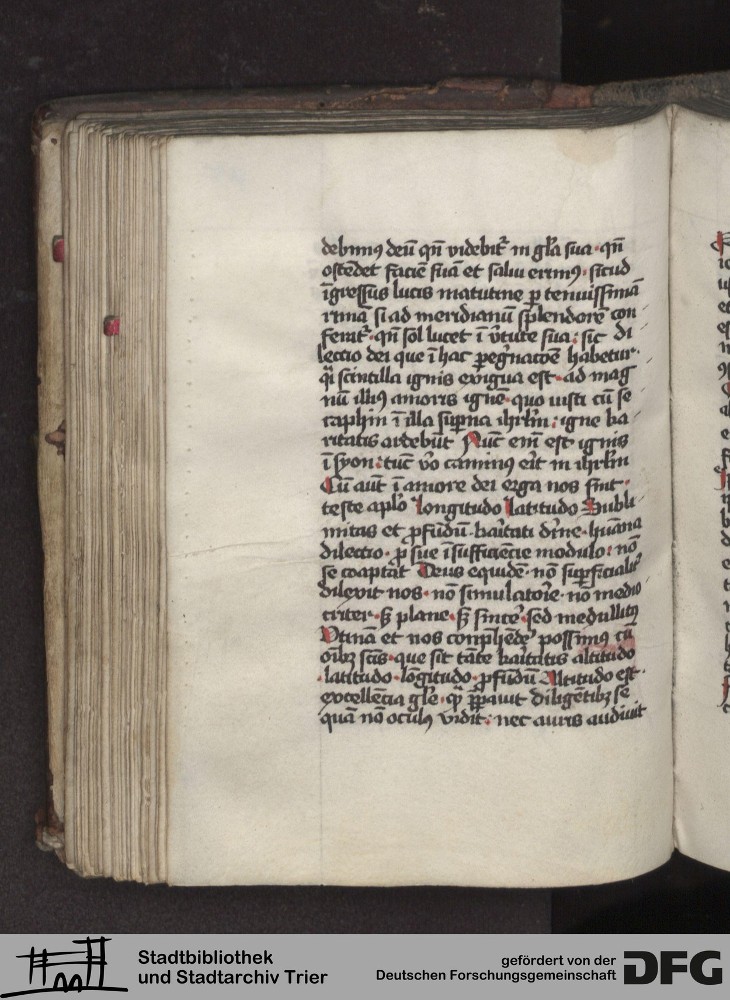 debimus deū qn̄ videbit᷑ in gl̄a sua · qn̄
ostēdet faciē suā et salui erimus · sicud
īgressus lucis matutine p tenuissimā
rimā si ad meridianū splendorē con
ferat᷑ · qn̄ sol lucet ī v̄tute sua : sic di
lectio dei que ī hac pegͥnacōe habetur ·
qͥ scintilla ignis exigua est · ad mag
nū illiꝰ amoris ignē · quo iusti cū se
raphin ī illa supna ihrlm̄ : igne ka
ritatis ardebūt Nūc em̄ est ignis
ī syon : tūc v̄o caminꝰ erit in ihrlm̄
Cū aūt ī amore dei erga nos sint ·
teste aplo longitudo latitudo Subli
mitas et ꝓfūdū · kaͥtati dīne · hūana
dilectio · p sue īsufficiēcie modulo : nō
se coaptāt Deus equidē · nō supficialit᷑
dilexit nos · nō simulatorie · nō medio
criter · sꝫ plane · sꝫ sincē · sed medullitꝰ
Vtinā et nos conp̄hēdē possimꝰ cū
oībꝫ scīs · que sit tāte kaͥtatis altitudo
· latitudo · lōgitudo · ꝓfūdū Altitudo est ·
excellēcia gl̄e · qͣ p̄pauit diligētibꝫ se
quā nō oculꝰ vidit : nec auris audiuit
Stadtbibliothek
und Stadtarchiv Trier
gefördert von der
Deutschen Forschungsgemeinschaft
DFG